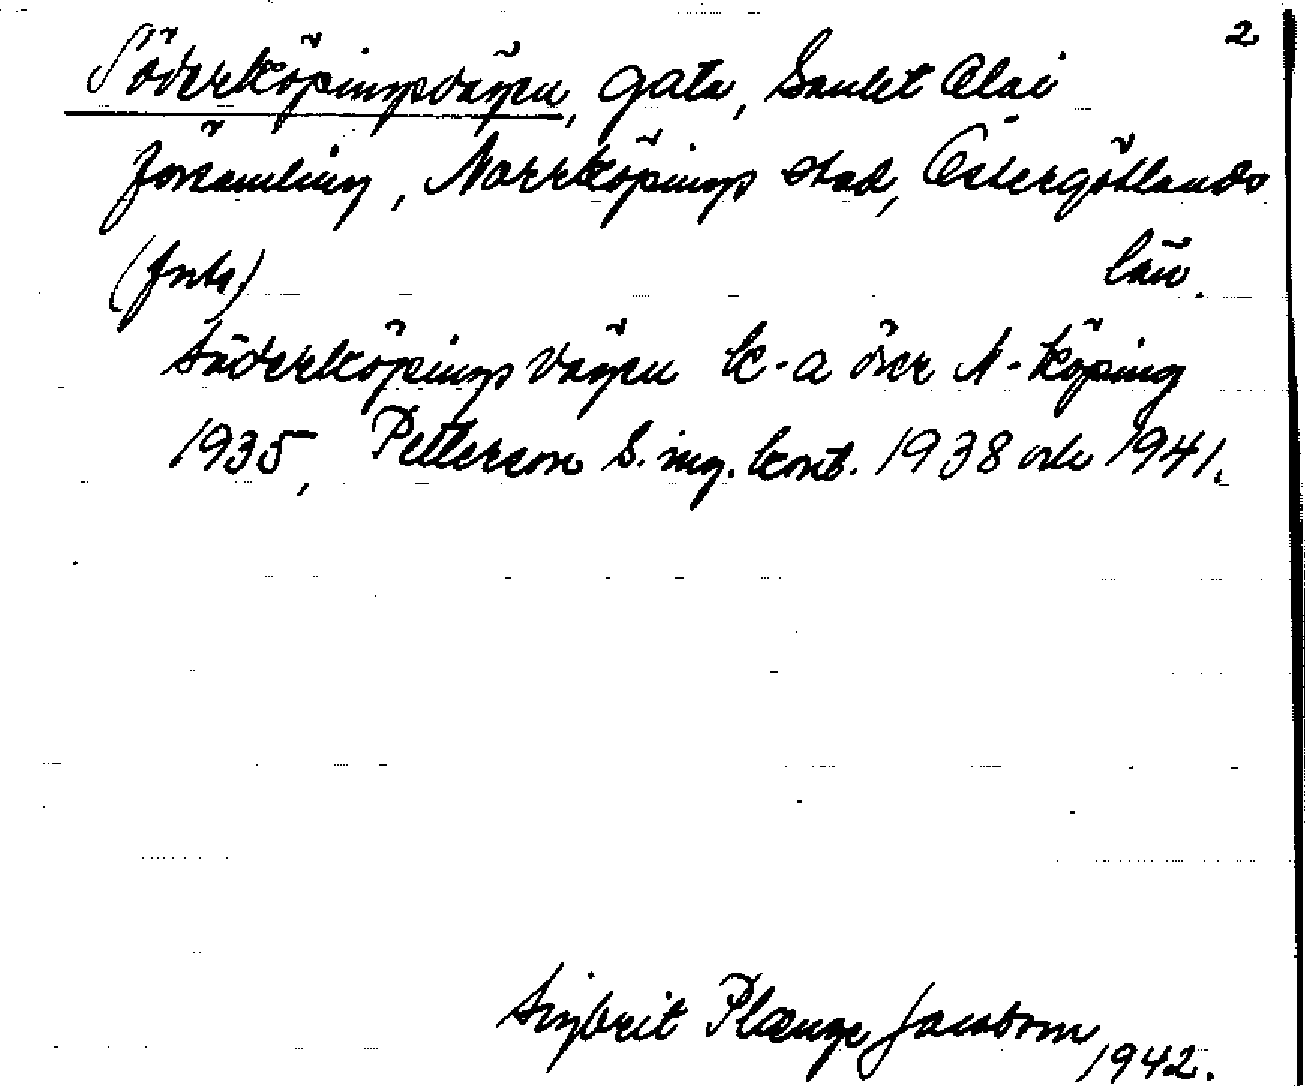 2
Söderköpingsvägen, gata, Sankt Olai
församling, Norrköpings stad, Östergötlands
(forts) län.
Söderköpings vägen k-a över N-köping
1935, Petterson S. ing. kont. 1938 och 1941.
Sigbrit Plænge Jacobson
1942.